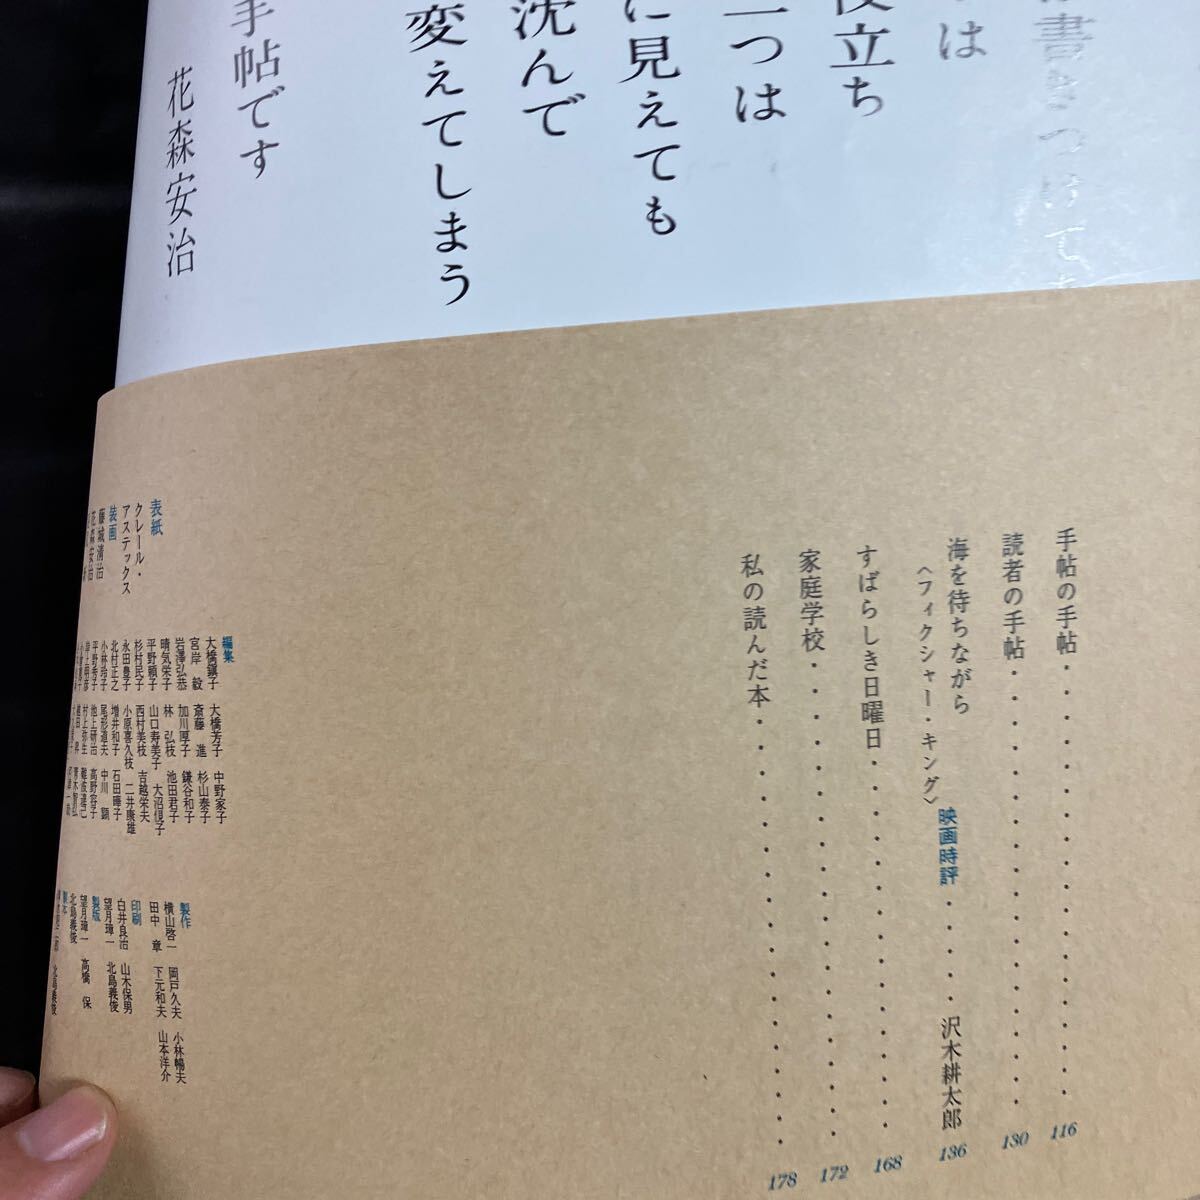 書きつけ
は
役立ち
一つは
に見えても
沈んで
変えてしまう
手帖です
花森安治
手帖の手帖 116
読者の手帖 130
海を待ちながら
〈フィクシャー・キング〉
映画時評 沢木耕太郎 136
すばらしき日曜日 168
家庭学校 172
私の読んだ本 178
表紙
クレール・
アステックス
装画
藤城清治
花森安治
編集
大橋鎭子 大橋芳子 中野家子
宮岸毅 斎藤進 杉山泰子
岩澤弘恭 加川厚子 鎌谷和子
晴気栄子 林弘枝 池田君子
平野頼子 山口寿美子 大沼俔子
杉村民子 西村美枝 吉越栄夫
永田豊子 小原喜久枝 二井康雄
北村正之 増井和子 石田曄子
小林玲子 尾形道夫 中川顕
平野秀子 池上研治 高野容子
村上弥生 難波達己
製作
横山啓一 岡戸久夫 小林暢夫
田中章 下元和夫 山本洋介
印刷
白井良治 山木保男
望月璋一 北島義俊
製版
望月璋一 高橋保
北島義俊
製本
北島義俊